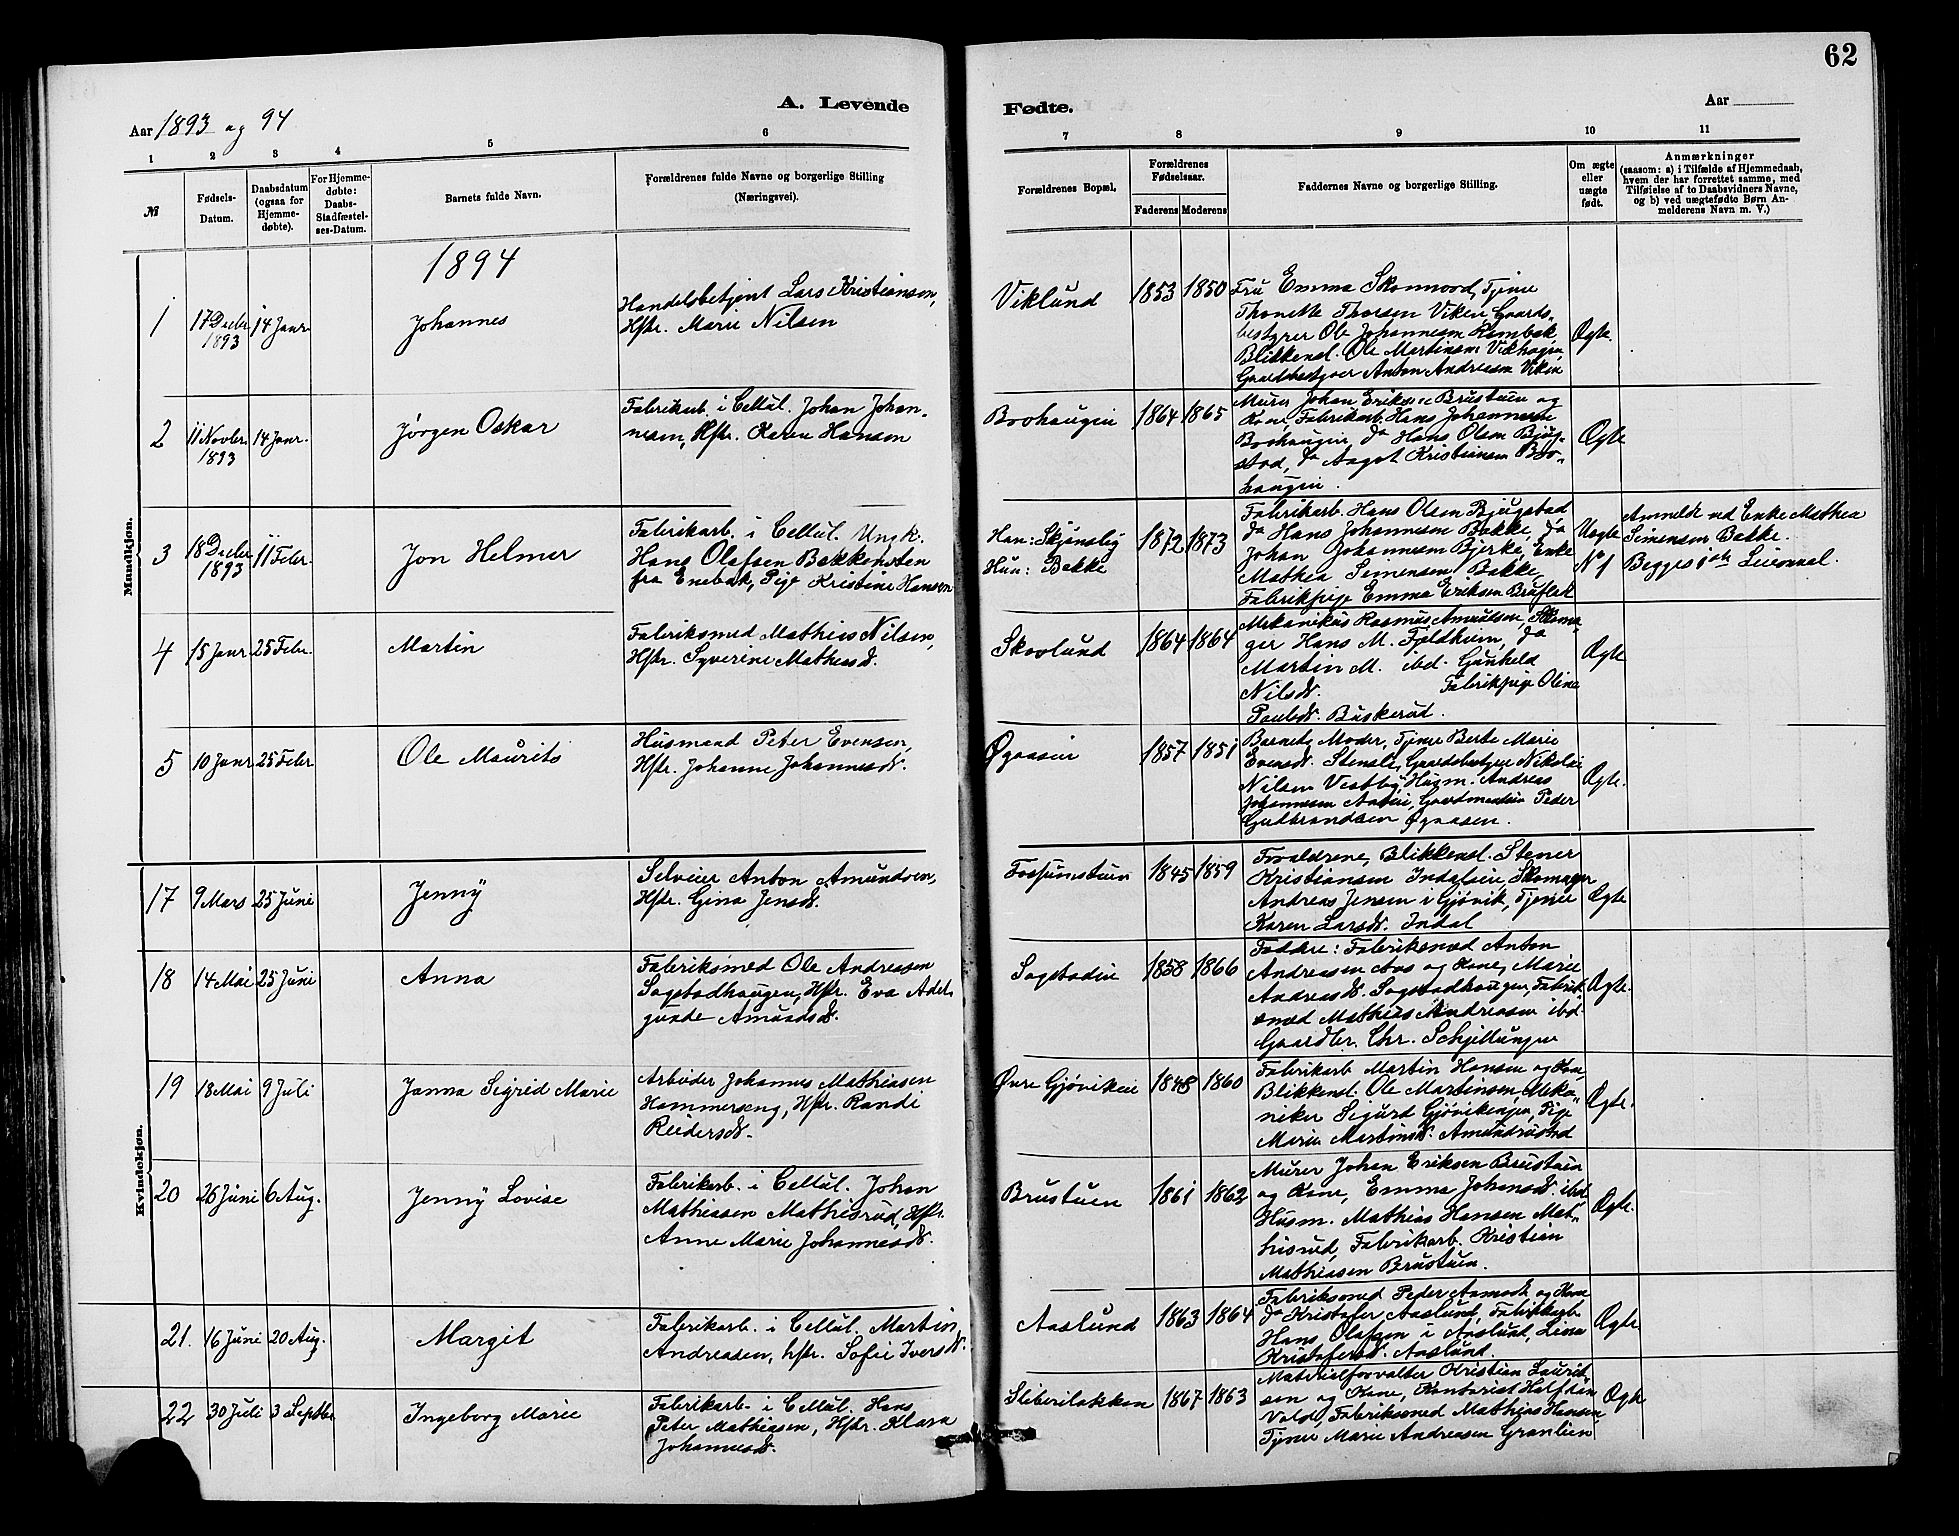 62
A. Levende
Fødte.
Aar 1893 og 94
Aar
1 2 3 4 5 6 7 8 9 10 11
№
Fødsels-
Datum.
Daabsdatum
(ogsaa for
Hjemme-
døbte).
For Hjemme-
døbte:
Daabs-
Stadfæstel-
ses-Datum.
Barnets fulde Navn.
Forældrenes fulde Navne og borgerlige Stilling
(Næringsvei).
Forældrenes Bopæl.
Forældrenes
Fødselsaar.
Faderens Moderens
Faddernes Navne og borgerlige Stilling.
Om ægte
eller
uægte
født.
Anmærkninger
(saasom: a) i Tilfælde af Hjemmedaab,
hvem der har forrettet samme, med
Tilføielse af to Daabsvidners Navne,
og b) ved uægtefødte Børn An-
melderens Navn m. V.)
Mandkjøn.
1894
1
17 Decbr
1893
14 Janr
Johannes
Handelsbetjent Lars Kristiansen,
Hstr. Marie Nilsen
Viklund
1853 1850
Fru Emma Tjener
Thonette Thorsen Viken, Gaards-
bestyrer Ole Johannesen
Blikkensl. Ole Martinsen Vikhagen,
Gaardsbestyrer Anton Andreasen Viken
Ægte.
2
11 Novbr.
1893
14 Janr.
Jørgen Oskar
Fabrikarb. i Cellul. Johan Johan-
nesen, Hstr. Karen Hansen
Brohaugen
1864 1865
Murer Johan Eriksen Brustuen og
Kone, Fabrikarb. Hans Johannesen
Brohaugen, do Hans Olsen Bjug-
stad, do Aagot Kristiansen Bro-
haugen.
Ægte
3
18 Decbr
1893
11 Febr.
Jon Helmer
Fabrikarb. i Cellul. Ungk.
Hans Olafsen Bakkensten
fra Enebak, Pige Kristine Hansen
Han: Skjønsby
Hun: Bakke
1872 1873
Fabrikarb. Hans Olsen Bjugstad
do Hans Johannesen Bakke, do
Johan Johannesen Bjerke, Enke
Mathea Simensen Bakke,
Fabrikpige Emma Eriksen Bruflat
Uægte
N° 1
Anmeldt ved Enke Mathea
Simensen Bakke.
Begges 1ste Leiermaal.
4
15 Janr
25 Febr.
Martin
Fabriksmed Mathias Nilsen,
Hstr. Syverine Mathiasd.
Skovlund
1864 1864
Mekanikus Rasmus Amundsen, Skoma-
ger Hans M. Fjeldheim, do
Martin M. ibd. Gunhild
Nilsd. Fabrikpige Oline
Paulsd. Buskerud.
Ægte
5
10 Janr
25 Febr
Ole Maurits
Husmand Peter Evensen,
Hstr. Johanne Johannesd.
Øgaasen
1857 1851
Barnets Moder, Tjener Berte Marie
Evensd. Stensli, Gaardsbestyrer Nikolai
Nilsen Vestby, Husm. Andreas
Johannesen Aasen, Gaardmandssøn Peder
Gudbrandsen Øgaasen.
Ægte.
Kvindekjøn.
17
9 Mars
25 Juni
Jenny
Selveier Anton Amundsen,
Hstr. Gina Jensd.
Fossumstuen
1845 1859
Forældrene, Blikkensl. Stener
Kristiansen Indalseie, Skomager
Andreas Jensen i Gjøvik, Tjener
Karen Larsd. Indal
Ægte
18
14 Mai
25 Juni
Anna
Fabriksmed Ole Andreasen
Sogstadhaugen, Hstr. Eva Adel-
gunde Amundsd.
Sogstadeie
1858 1866
Faddere: Fabriksmed Anton
Andreasen Aas og Kone, Marie
Andreasd. Sogstadhaugen, Fabrik-
smed Mathias Andreasen ibd.
Gaardbr. Chr. Schjellungen
Ægte.
19
18 Mai
9 Juli
Janna Sigrid Marie
Arbeider Johannes Mathiasen
Hammerseng, Hstr. Randi
Reidersd.
Øvre Gjøvikeie
1848 1860
Fabrikarb Martin Hansen og Kone,
Blikkensl. Ole Martinsen, Meka-
niker Sigurd Gjøvikengen, Pige
Marie Martinsd. Amundrustad
Ægte.
20
26 Juni
6 Aug.
Jenny Lovise
Fabrikarb. i Cellul. Johan
Mathiasen Mathisrud, Hstr.
Anne Marie Johannesd.
Brustuen
1861 1862
Murer Johan Eriksen Brustuen
og Kone, Emma Johansd. ibd.
Husm. Mathias Hansen Mat-
hisrud, Fabrikarb. Kristian
Mathiasen Brustuen.
Ægte.
21.
16 Juni
20 Aug.
Margit
Fabrikarb. i Cellul. Martin
Andreasen, hstr. Sofie Iversd.
Aaslund
1863 1864
Fabriksmed Peder Aamodt og Kone
do Kristofer Aaslund, Fabrikarb.
Hans Olafsen i Aaslund, Lina
Kristofersd. Aaslund.
Ægte
22
30 Juli
3 Septbr
Ingeborg Marie
Fabrikarb. i Cellul. Hans
Peter Mathiasen, Hstr. Klara
Johannesd.
Sliberiløkken
1867 1863
Materialforvalter Kristian Laurit-
sen og Kone, Kontorist Halfdan
Vold, Fabriksmed Mathias Hansen,
Tjener Marie Andreasen Granlien
Ægte